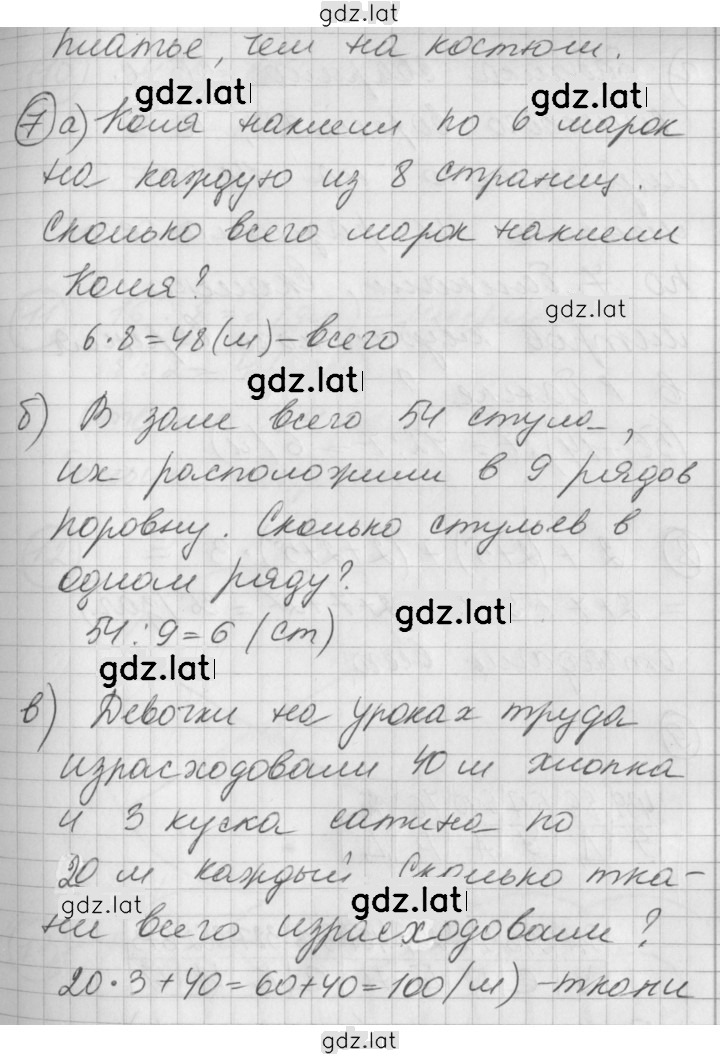 gdz.lat
платье, чем на костюм.
gdz.lat gdz.lat
7 а) Коля наклеил по 6 марок
на каждую из 8 страниц.
Сколько всего марок наклеил
Коля?
gdz.lat
6·8=48(м)-всего
gdz.lat
б) В зале всего 54 стула,
их расположили в 9 рядов
поровну. Сколько стульев в
одном ряду?
gdz.lat
54:9=6 (ст)
gdz.lat
в) Девочки на уроках труда
израсходовали 40 м хлопка
и 3 куска сатина по
20 м каждый. Сколько тка-
gdz.lat gdz.lat
ни всего израсходовали?
20·3+40=60+40=100(м)-ткани
gdz.lat